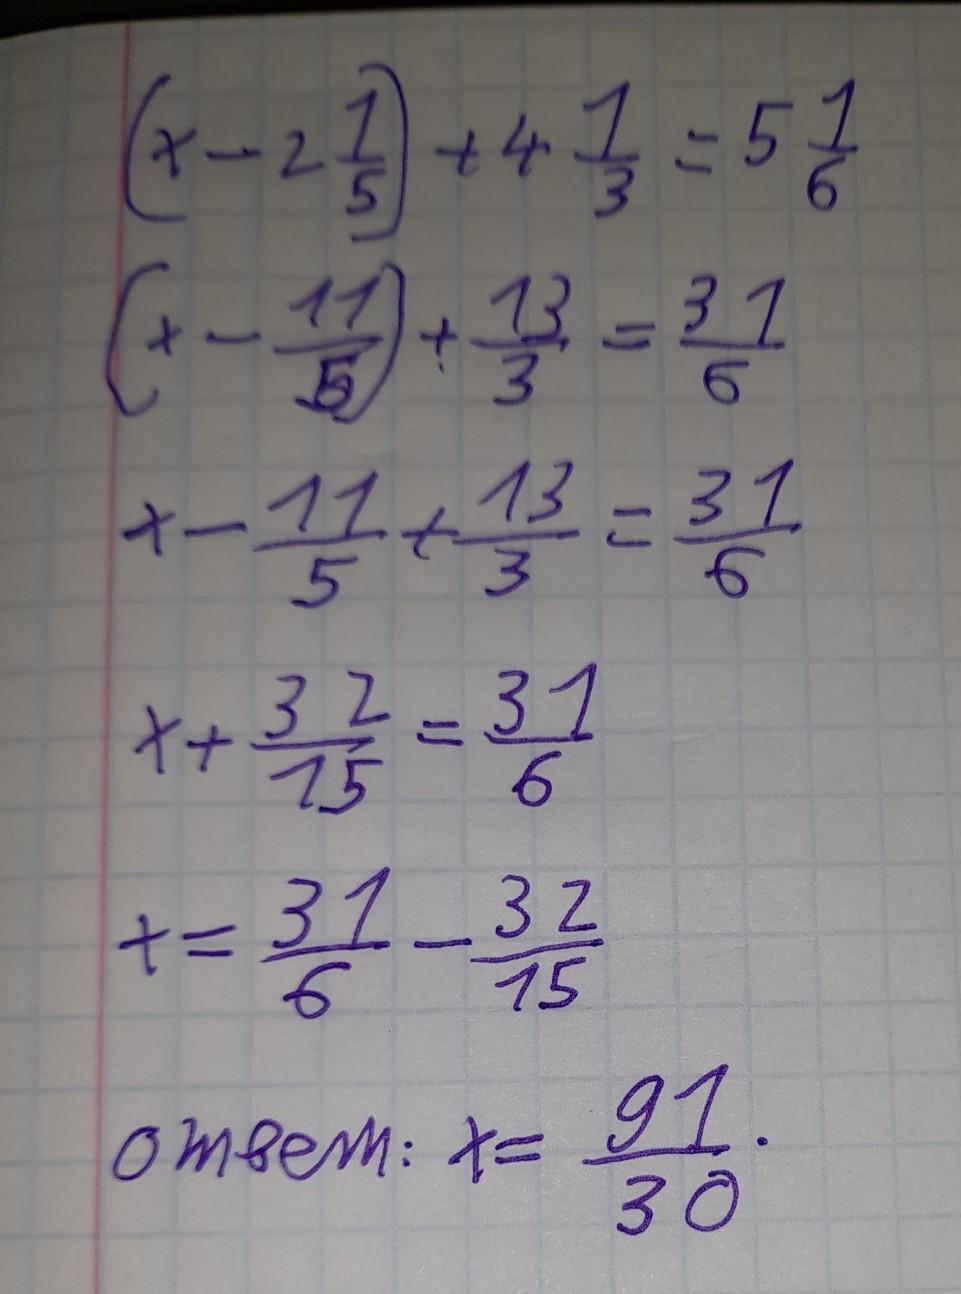 (x - 2 1/5) + 4 1/3 = 5 1/6
(x - 11/5) + 13/3 = 31/6
x - 11/5 + 13/3 = 31/6
x + 32/15 = 31/6
x = 31/6 - 32/15
ответ: x = 91/30.